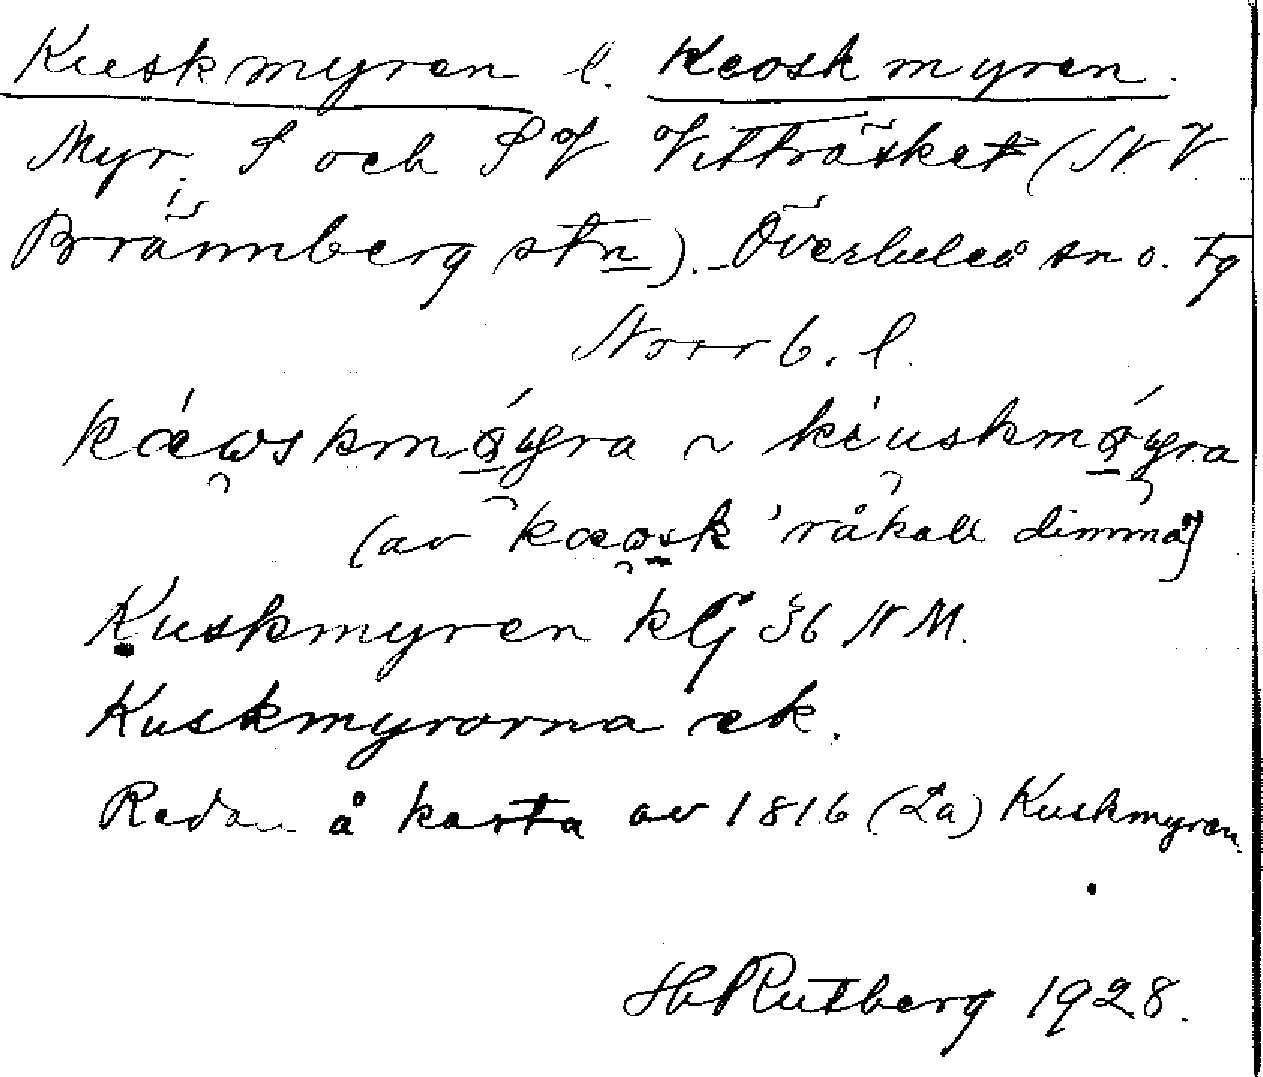 Kuskmyren l. Keoskmyren.
Myr, S och SV Vitträsket (NV
Brännberg stn). Överluleå sn o. tg
Norrb. l.
(av kæosk 'råkall dimma')
Kuskmyren kG 36 NM.
Kuskmyrorna ek.
Redan å karta av 1816 (2a) Kuskmyren
Hb Rutberg 1928.